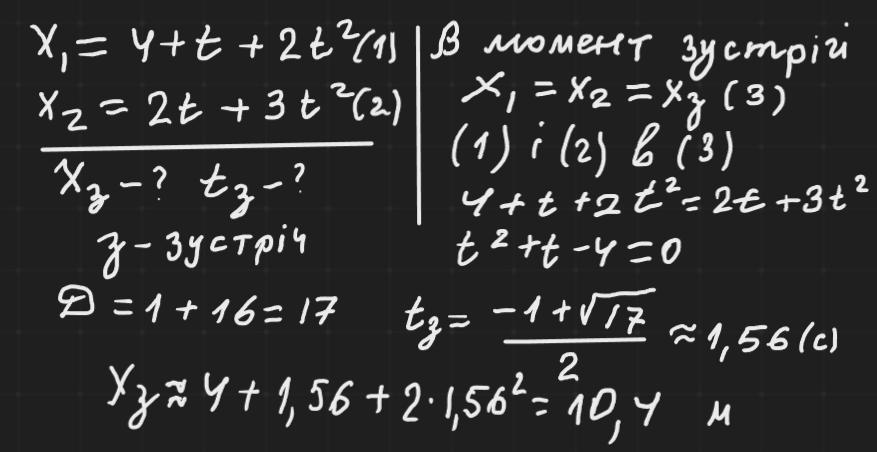 x₁ = 4 + t + 2t² (1)
x₂ = 2t + 3t² (2)
x_з - ? t_з - ?
з - зустріч
В момент зустрічі
x₁ = x₂ = x_з (3)
(1) і (2) в (3)
4 + t + 2t² = 2t + 3t²
t² + t - 4 = 0
D = 1 + 16 = 17
t_з = (-1 + √17)/2 ≈ 1,56 (с)
x_з ≈ 4 + 1,56 + 2·1,56² = 10,4 м